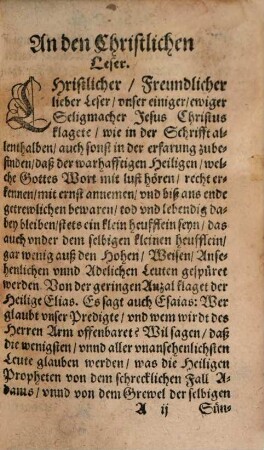 An den Christlichen
Leser.
CHristlicher / Freundlicher
lieber Leser / vnser einiger / ewiger
Seligmacher Jesus Christus
klagete / wie in der Schrifft al-
lenthalben / auch sonst in der erfarung zube-
finden / daß der warhafftigen Heiligen / wel-
che Gottes Wort mit lust hören / recht er-
kennen / mit ernst annemen / vnd biß ans ende
getrewlichen bewaren / tod vnd lebendig da-
bey bleiben / stets ein klein heufflein seyn / das
auch vnder dem selbigen kleinen heufflein /
gar wenig auß den Hohen / Weisen / Anse-
henlichen vnnd Adelichen Leuten gespüret
werden. Von der geringen Anzal klaget der
Heilige Elias. Es sagt auch Esaias: Wer
glaubt vnser Predigte / vnd wem wirdt des
Herren Arm offenbaret? Wil sagen / daß
die wenigsten / vnnd aller vnansehenlichsten
Leute glauben werden / was die Heiligen
Propheten von dem schrecklichen Fall A-
dams / vnnd von dem Grewel der selbigen
A ij Sün-